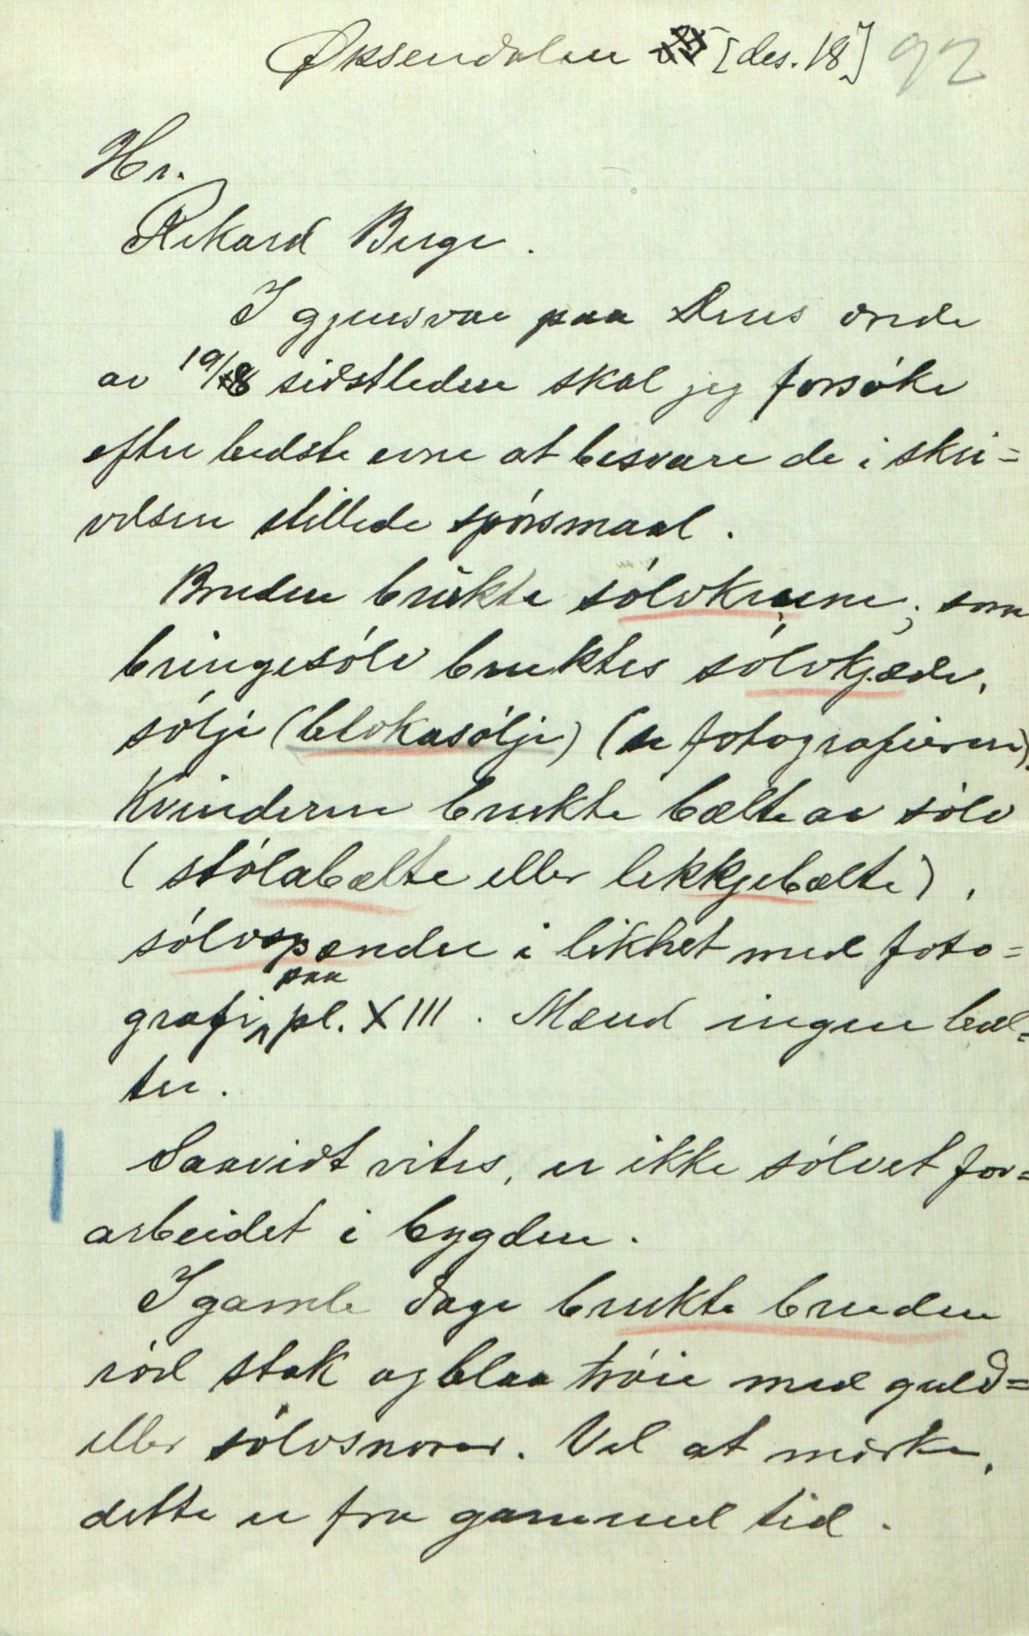 Øksendalen [des. 18] 92
Hr.
Rikard Berge.
I gjensvar paa Deres ærede
av 19/8 sidstleden skal jeg forsøke
efter bedste evne at besvare de i skri=
velsen stillede spørsmaal.
Bruden brukte sølvkrune; som
bringesølv bruktes sølvkjæde,
sølje (blokasølje) (se fotografieren).
Kvinderne brukte bælte av sølv
(stólabælte eller lekkjebælte),
sølvspænder i likhet med foto=
grafi paa pl. XIII. Mænd ingen bæl=
ter.
Saavidt vites, er ikke sølvet for=
arbeidet i bygden.
I gamle dage brukte bruden
rød stak og blaa trøie med guld=
eller sølvsnorer. Vel at mærke,
dette er fra gammel tid.